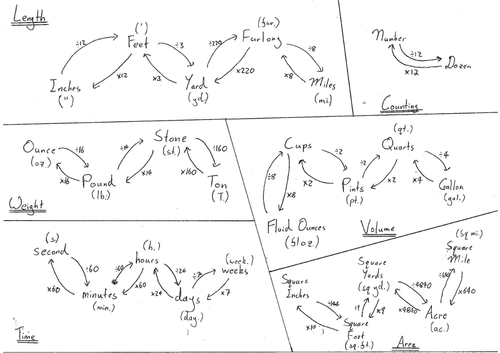 Length
(')
Feet
÷12
÷3
x12
x3
Inches
(")
Yard
(yd.)
(fur.)
Furlong
÷220
x220
÷8
x8
Miles
(mi.)
Number
÷12
x12
Dozen
Counting
Ounce
(oz.)
÷16
x16
Pound
(lb.)
x14
Stone
(st.)
÷160
x160
Ton
(T.)
Weight
Cups
÷8
x8
Fluid Ounces
(fl oz.)
÷2
x2
Pints
(pt.)
÷2
x2
(qt.)
Quarts
÷4
x4
Gallon
(gal.)
Volume
(s)
second
÷60
x60
minutes
(min.)
÷60
x60
(h.)
hours
÷24
x24
days
(day.)
÷7
x7
(week.)
weeks
Time
Square
Inches
÷144
Square
Foot
(sq.ft.)
÷9
x9
Square
Yards
(sq yd.)
÷4840
x4840
Acre
(ac.)
÷640
x640
(sq mi.)
Square
Mile
Area